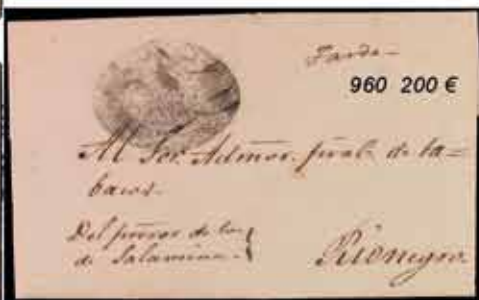 Tarde
960 200 €
Al Sor. Admor. pral. de ta=
bacos.
Del de
de Salamina.
Rionegro.